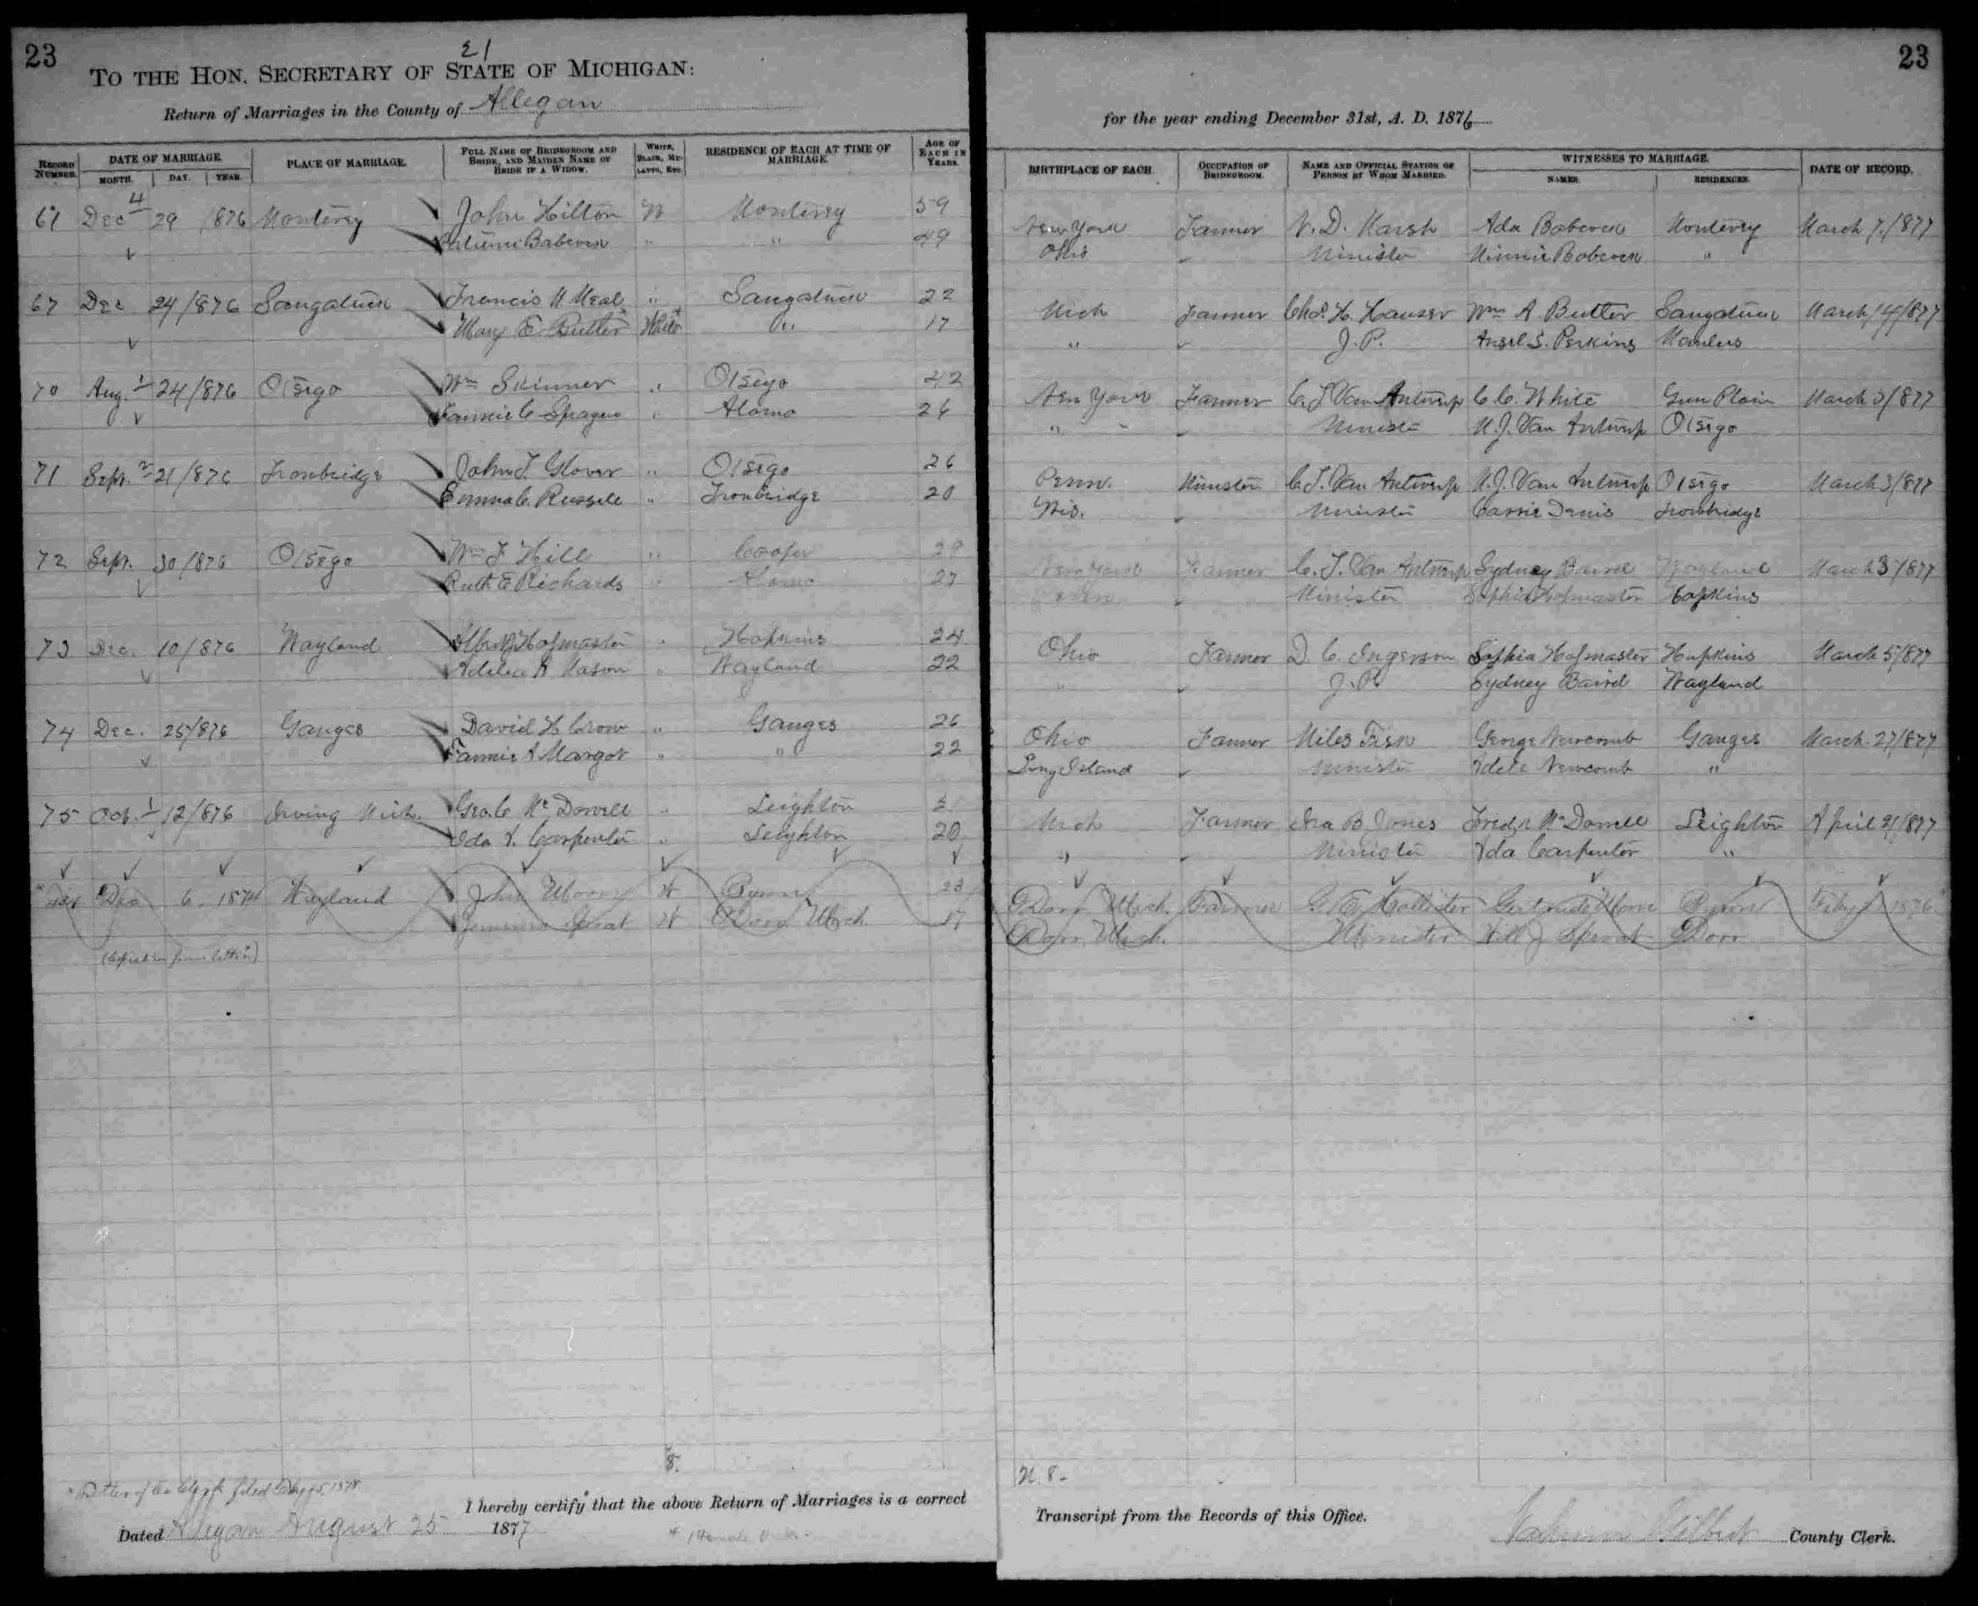 23
21
TO THE HON. SECRETARY OF STATE OF MICHIGAN:
Return of Marriages in the County of Allegan
RECORD NUMBER. DATE OF MARRIAGE. MONTH. DAY. YEAR. PLACE OF MARRIAGE. FULL NAME OF BRIDEGROOM AND BRIDE, AND MAIDEN NAME OF BRIDE IF A WIDOW. WHITE, BLACK, MULATTO, ETC. RESIDENCE OF EACH AT TIME OF MARRIAGE. AGE OF EACH IN YEARS.
4
Dec 29 1876 Monterey John Hilton W Monterey 59
Babcock " " 49
67 Dec 24/876 Saugatuck Francis " Saugatuck 22
Mary E. Butler White " 17
70 Aug. 24/876 Otsego Wm Skinner " Otsego 42
Fannie C Sprague " Alamo 26
71 Sept. 21/876 Ironbridge John T. Glover " Otsego 26
Emma C. Russell " Ironbridge 20
72 Sept. 30/876 Otsego Wm F Hill " Cooper
Ruth E Richards " Alamo 27
73 Dec. 10/876 Wayland Hofmaster " Hopkins 24
Adelia Mason " Wayland 22
74 Dec. 25/876 Ganges David H Crow " Ganges 26
Fannie A Margot " " 22
75 Oct. 12/876 Irving Mich. Geo. C McDowell " Leighton
Ida Carpenter " Leighton 20
Dec 6 Wayland John W Byron 23
Sprat W Dorr Mich. 17
Letter of Co Clerk filed
8.
I hereby certify that the above Return of Marriages is a correct
Dated Allegan August 25 1877
23
for the year ending December 31st, A. D. 1876
BIRTHPLACE OF EACH. OCCUPATION OF BRIDEGROOM. NAME AND OFFICIAL STATION OF PERSON BY WHOM MARRIED. WITNESSES TO MARRIAGE. NAMES. RESIDENCES. DATE OF RECORD.
New York Farmer D. Marsh Ada Babcock Monterey March 7/877
Ohio Minister Minnie Babcock "
Mich Farmer Chas. H. Hauser Wm A. Butler Saugatuck March 14/877
" J.P. Ansel S. Perkins Manlius
New York Farmer C. T. Van Antwerp C. C. White Gun Plain March 3/877
" Minister M. J. Van Antwerp Otsego
Penn. Minister C. T. Van Antwerp M. J. Van Antwerp Otsego March 3/877
Wis. Minister Carrie Ironbridge
New York Farmer C. T. Van Antwerp Sydney Baird Wayland March 3/877
Minister Sophia Hofmaster Hopkins
Ohio Farmer D. C. Ingerson Sophia Hofmaster Hopkins March 5/877
" J.P. Sydney Baird Wayland
Ohio Farmer Miles Fisk George Newcomb Ganges March 27/877
Long Island Minister Adele Newcomb "
Mich Farmer Ira B Jones McDowell Leighton April 21/877
" Minister Ida Carpenter "
Dorr Mich. Farmer Gertrude Moore Byron 1876
Dorr Mich. Minister Will J Sprat Dorr
Transcript from the Records of this Office.
Gilbert County Clerk.